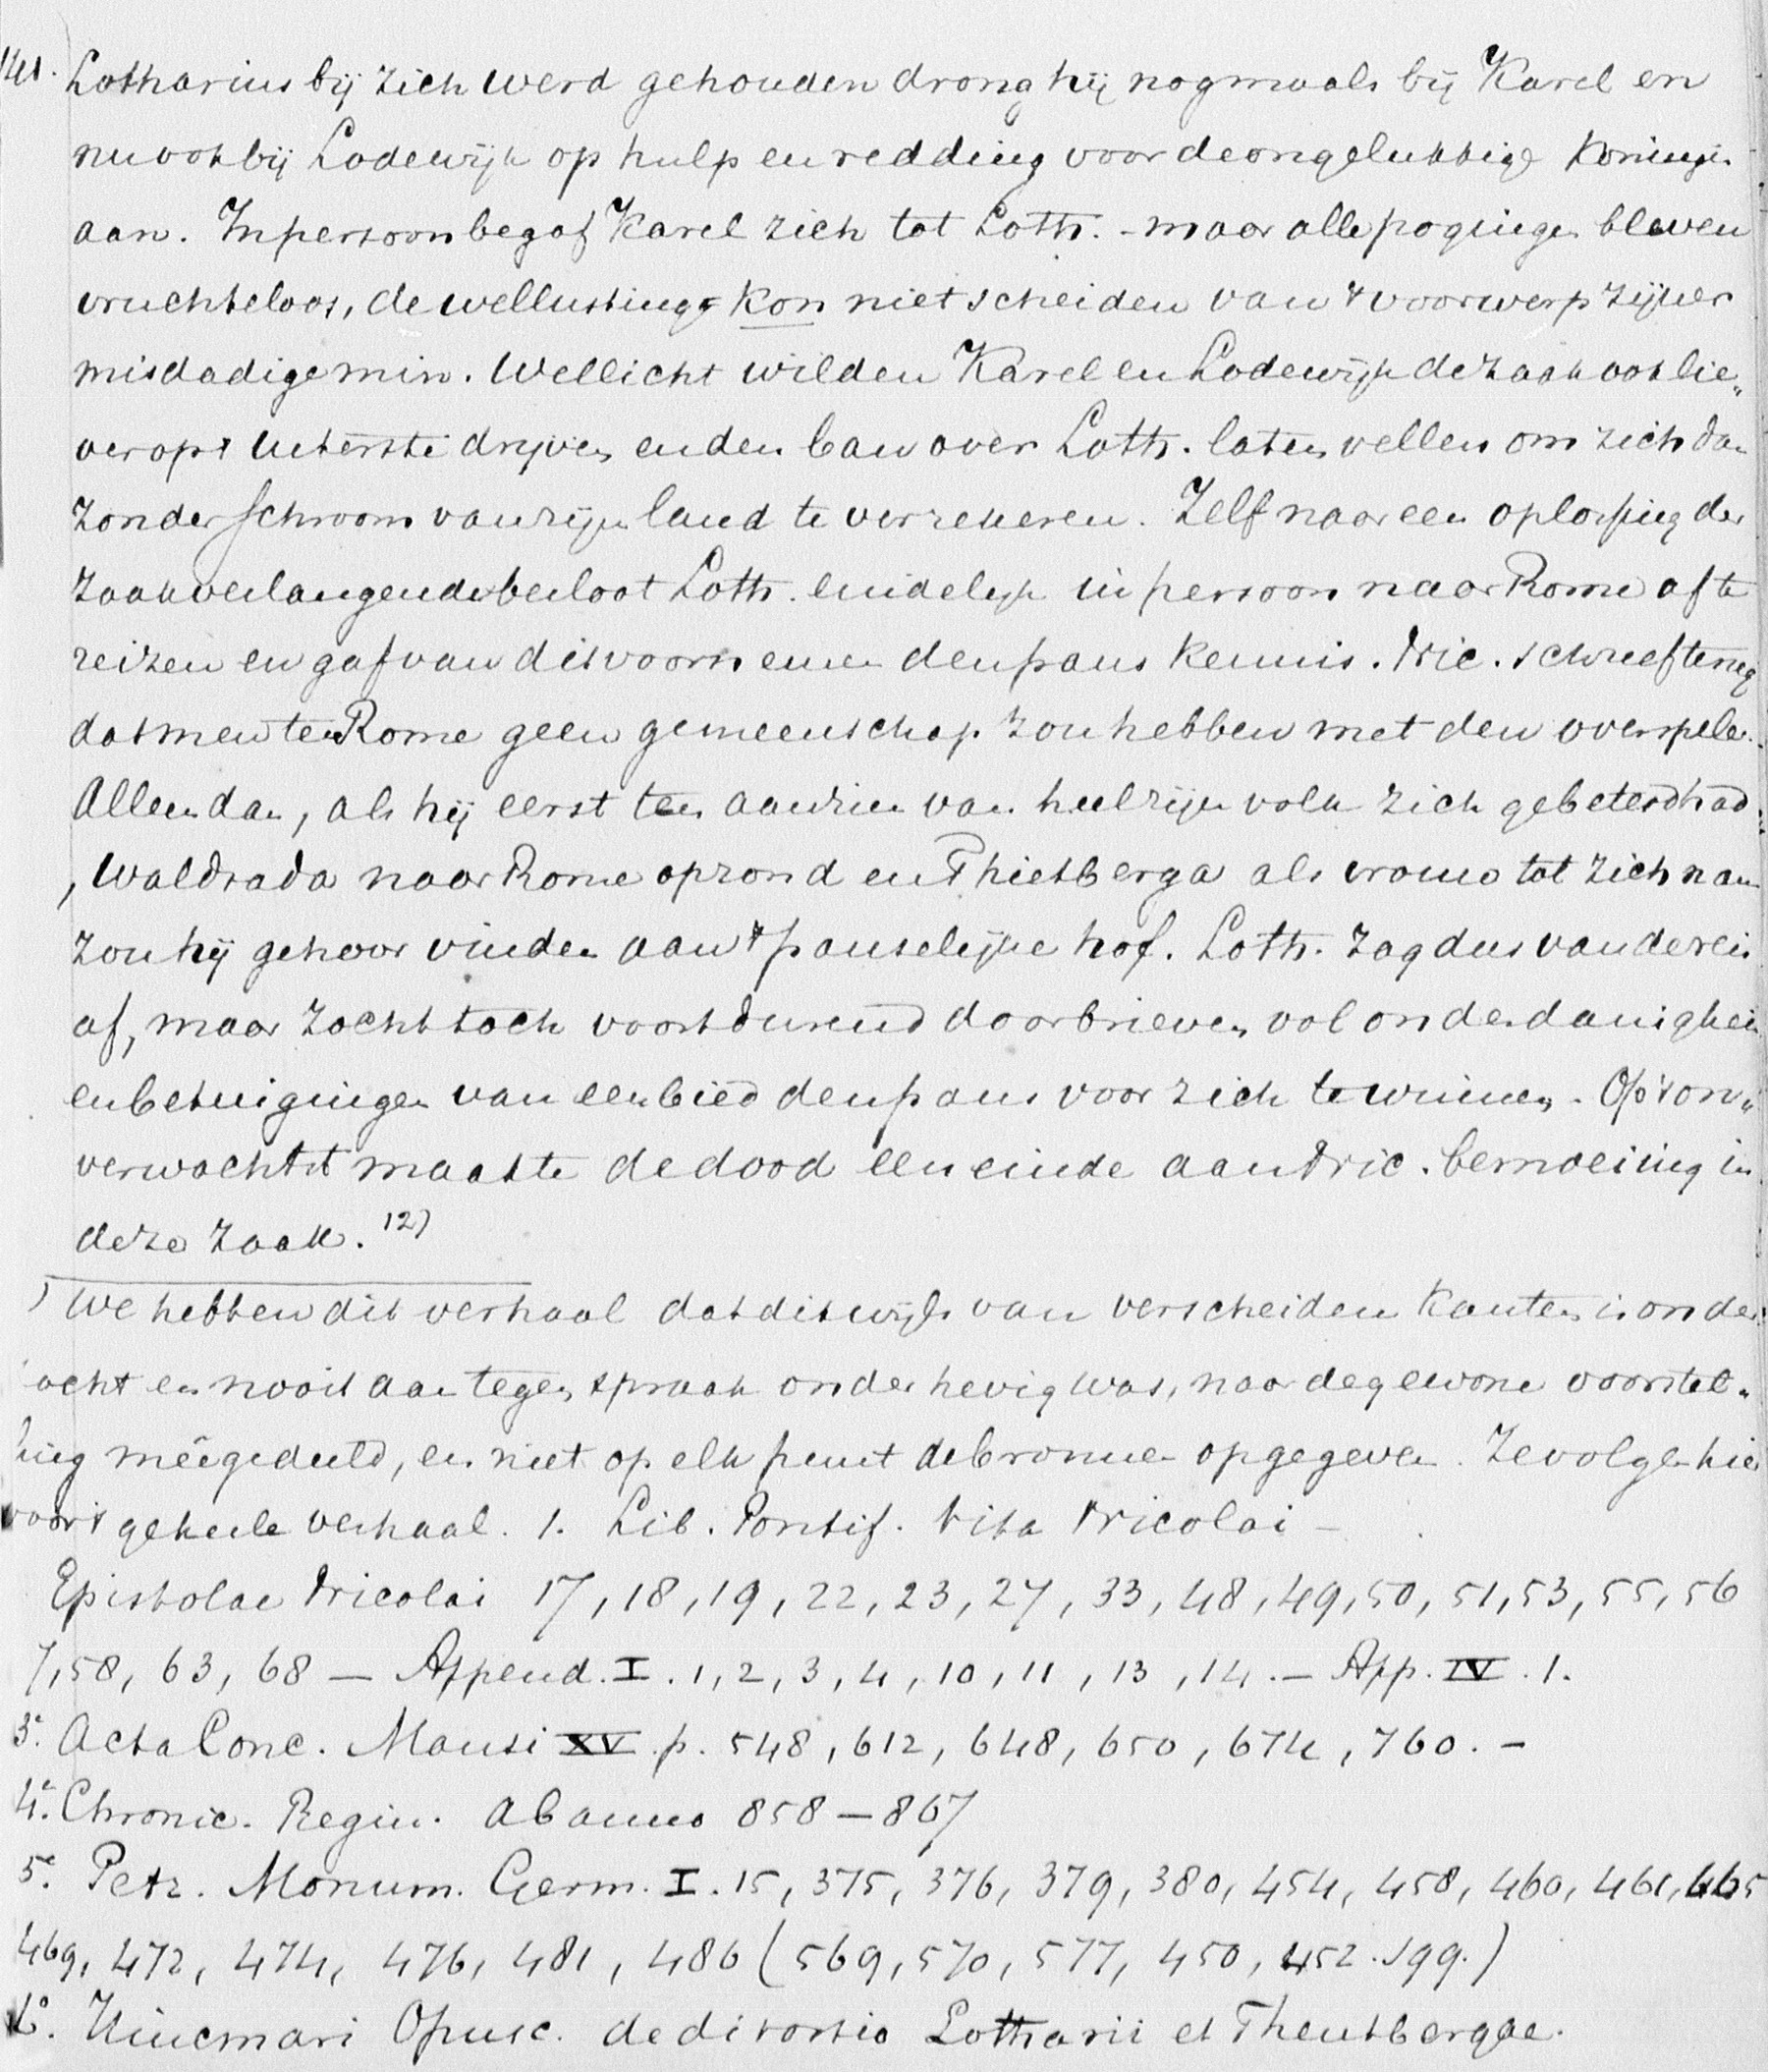 141. Lotharius bij zich werd gehouden drong hij nogmaals bij Karel en
nu ook bij Lodewijk op hulp en redding voor de ongelukkige Koningin
aan. In persoon begaf Karel zich tot Loth. - maar alle pogingen bleven
vruchteloos, de wellusting kon niet scheiden van 't voorwerp zijner
misdadige min. Wellicht wilden Karel en Lodewijk de zaak ook lie„
ver op 't uiterste drijven en den ban over Loth. laten vellen om zich dan
zonder schroom van zijn land te verzekeren. Zelf naar een oplossing der
zaak verlangende besloot Loth. eindelijk in persoon naar Rome af te
reizen en gaf van dit voornemen den paus kennis. Nic. schreef terug
dat men te Rome geen gemeenschap zou hebben met den overspeler.
Alleen dan, als hij eerst ten aanzien van heel zijn volk zich gebeterd had
, Waldrada naar Rome opzond en Thietberga als vrouw tot zich nam
zou hij gehoor vinden aan 't pauselijke hof. Loth. zag dus van de reis
af, maar zocht toch voortdurend door brieven vol onderdanigheid
en betuigingen van eerbied den paus voor zich te winnen. Op 't on„
verwachtst maakte de dood een einde aan Nic. bemoeiing in
deze zaak. 12)
) We hebben dit verhaal dat ditwijls van verscheiden kanten is onder
ocht en nooit aan tegenspraak onderhevig was, naar de gewone voorstel„
ling meêgedeeld, en niet op elk punt de bronnen opgegeven. Ze volgen hier
voor 't geheele verhaal. 1. Lib. Pontif. Vita Nicolai –
Epistolae Nicolai 17, 18, 19, 22, 23, 27, 33, 48, 49, 50, 51, 53, 55, 56
7, 58, 63, 68 — Append. I. 1, 2, 3, 4, 10, 11, 13, 14. — App. IV. 1.
3°. Acta Conc. Mansi XV. p. 548, 612, 648, 650, 674, 760. –
4°. Chronic. Regin. ab anno 858 — 867
5°. Petz. Monum. Germ. I. 15, 375, 376, 379, 380, 454, 458, 460, 461, 465
469, 472, 474, 476, 481, 486 (569, 570, 577, 450, 452. sqq.)
6°. Hincmari Opusc. de divortio Lotharii et Theutbergae.